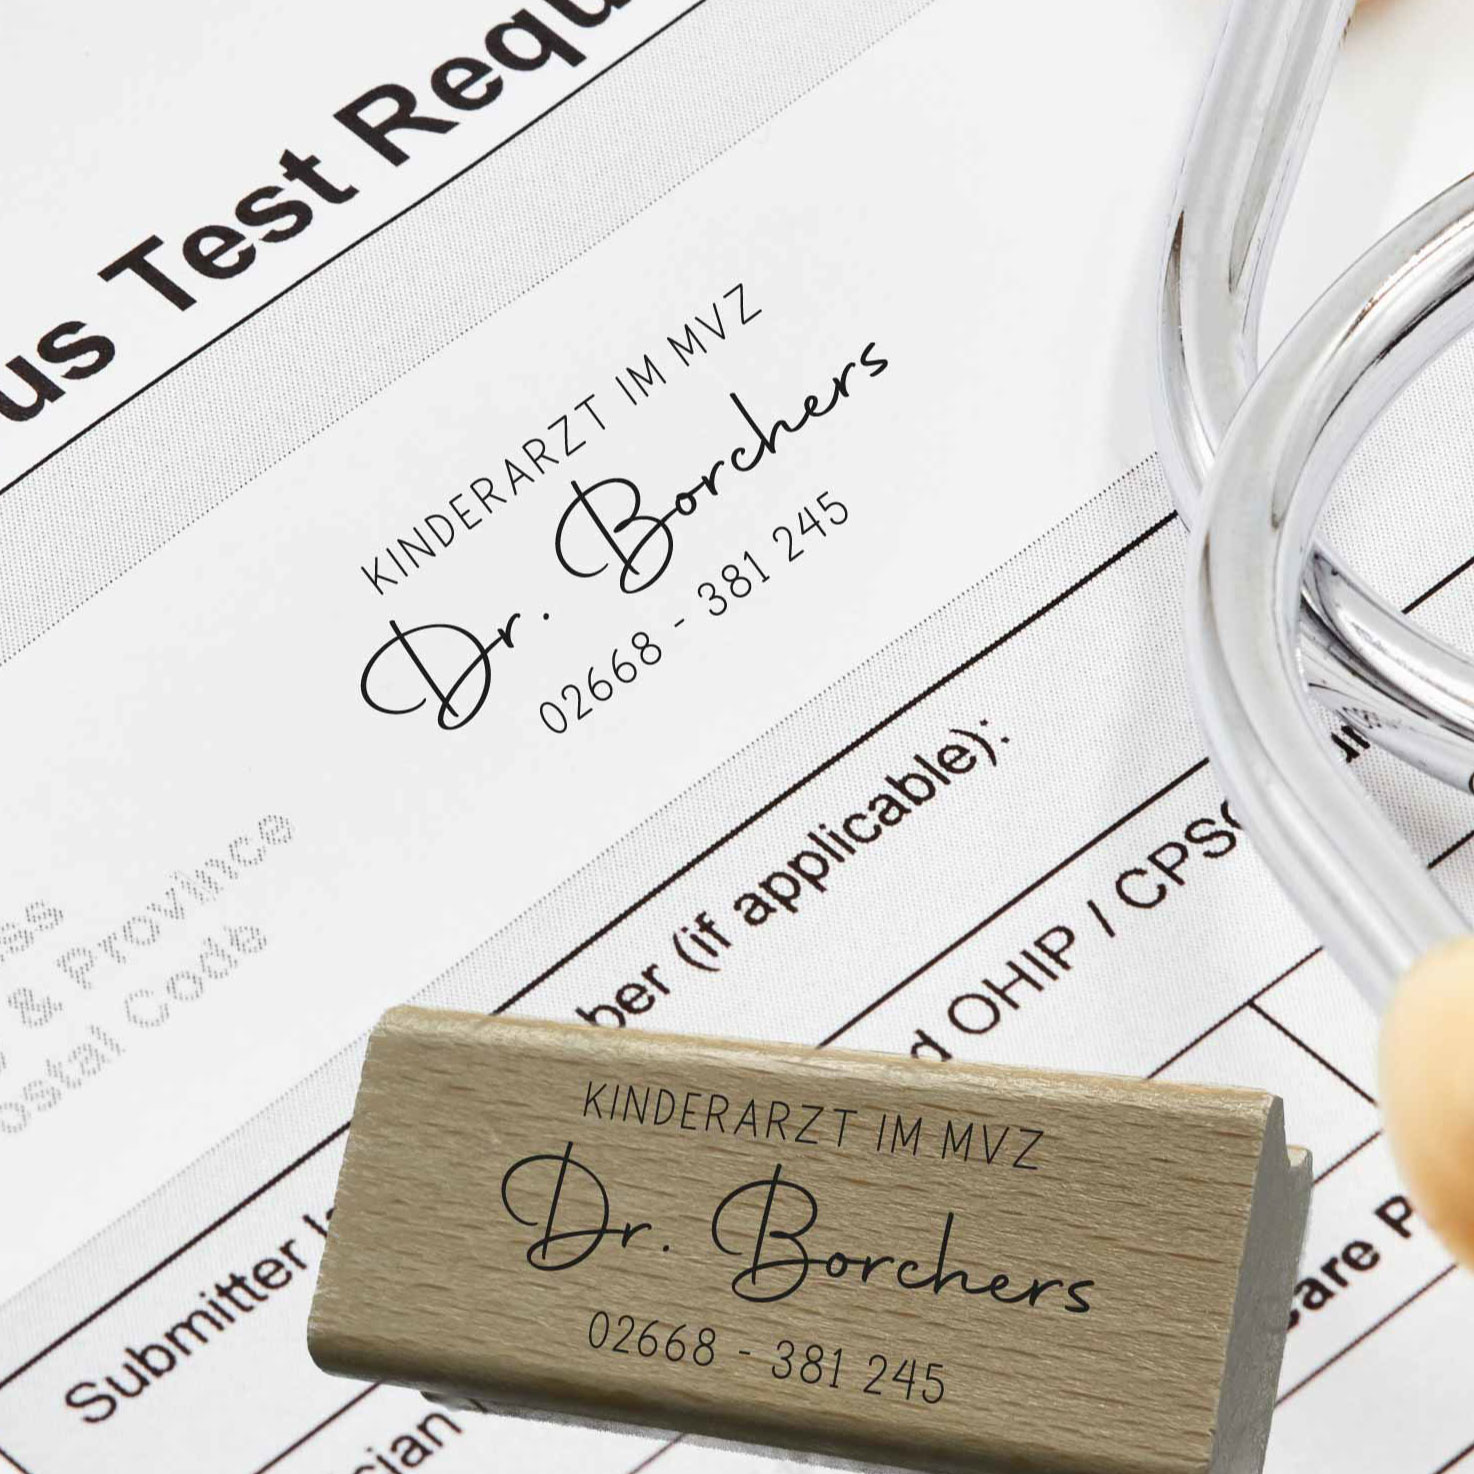 us Test Requ
KINDERARZT IM MVZ
Dr. Borchers
02668 - 381 245
& Province
Postal Code
ber (if applicable):
d OHIP / CPSO
Submitter
cian
care P
KINDERARZT IM MVZ
Dr. Borchers
02668 - 381 245